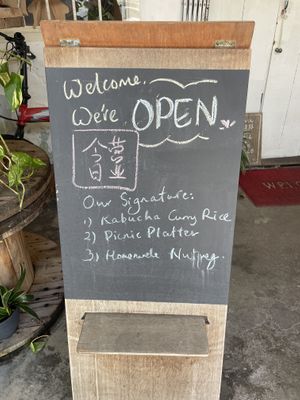 Welcome.
We're OPEN
今日
營业
Our Signature:
1) Kabucha Curry Rice
2) Picnic Platter
3) Homemade Nutmeg.
WEL